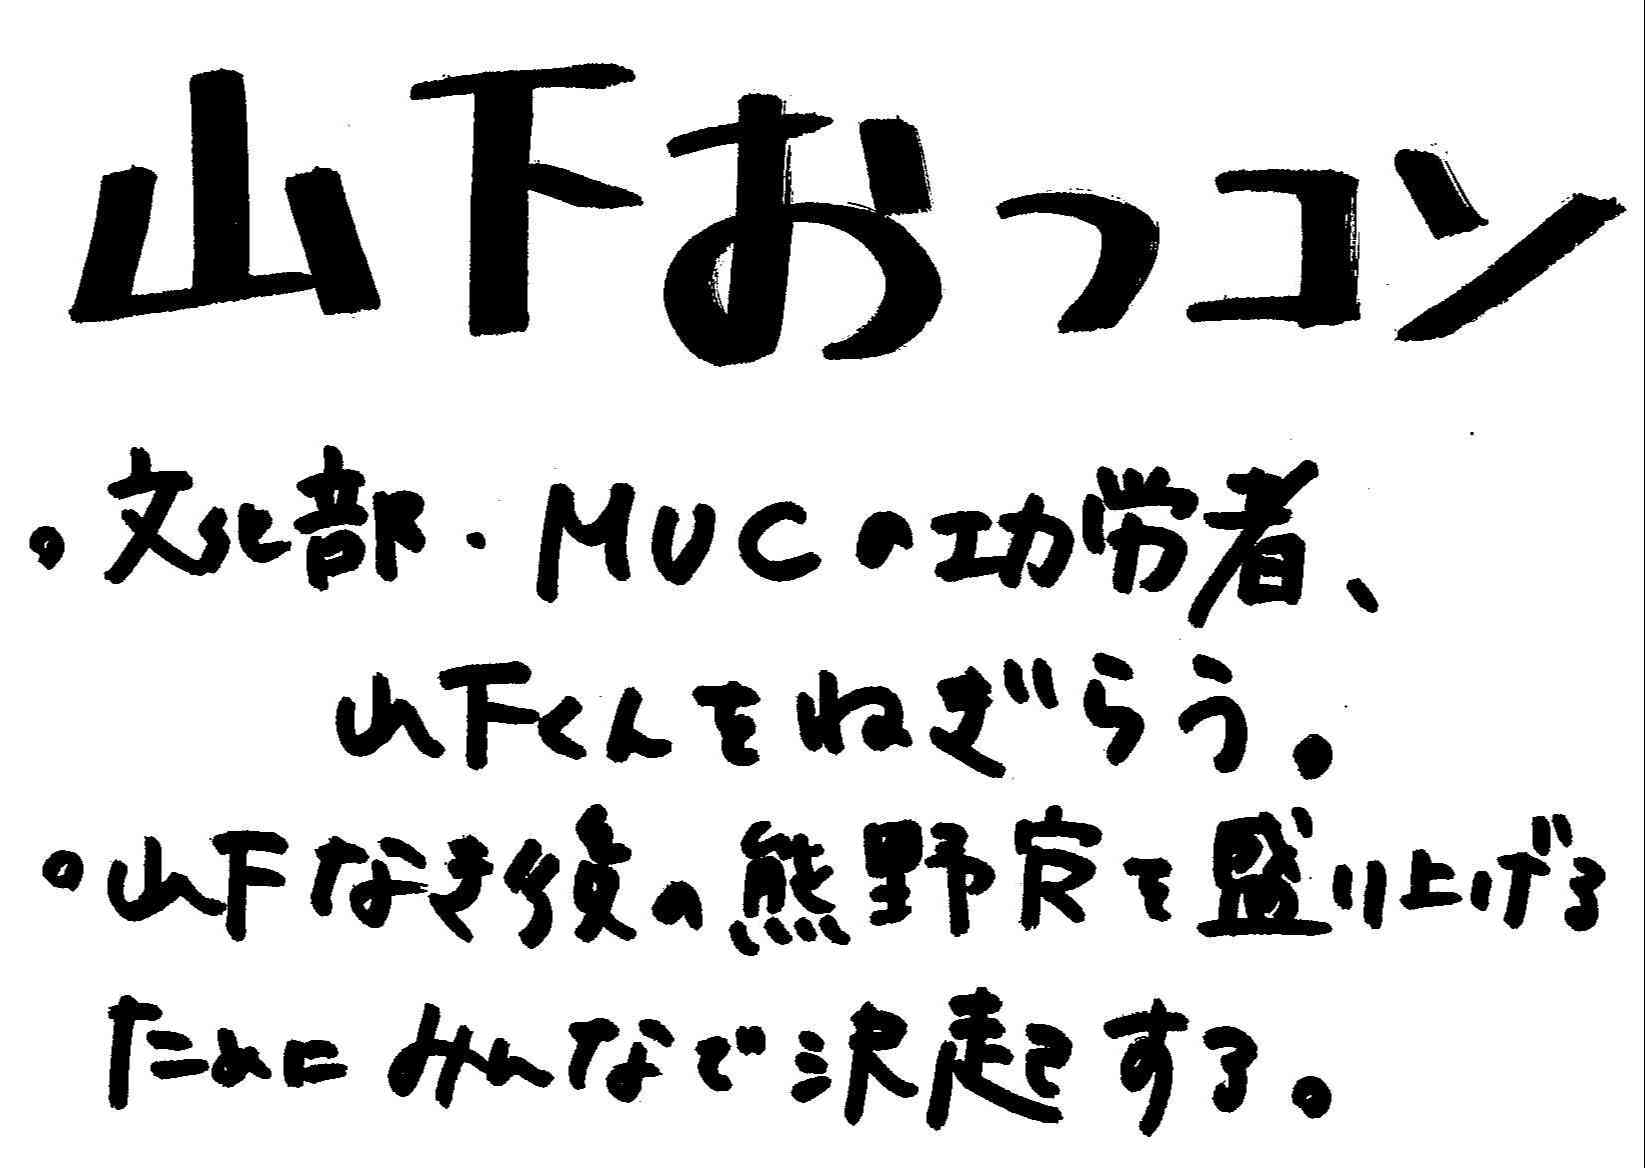 山下おっコン
。文化部・MUCの功労者、
山下くんをねぎらう。
。山下なき後の熊野寮を盛り上げる
ためにみんなで決起する。